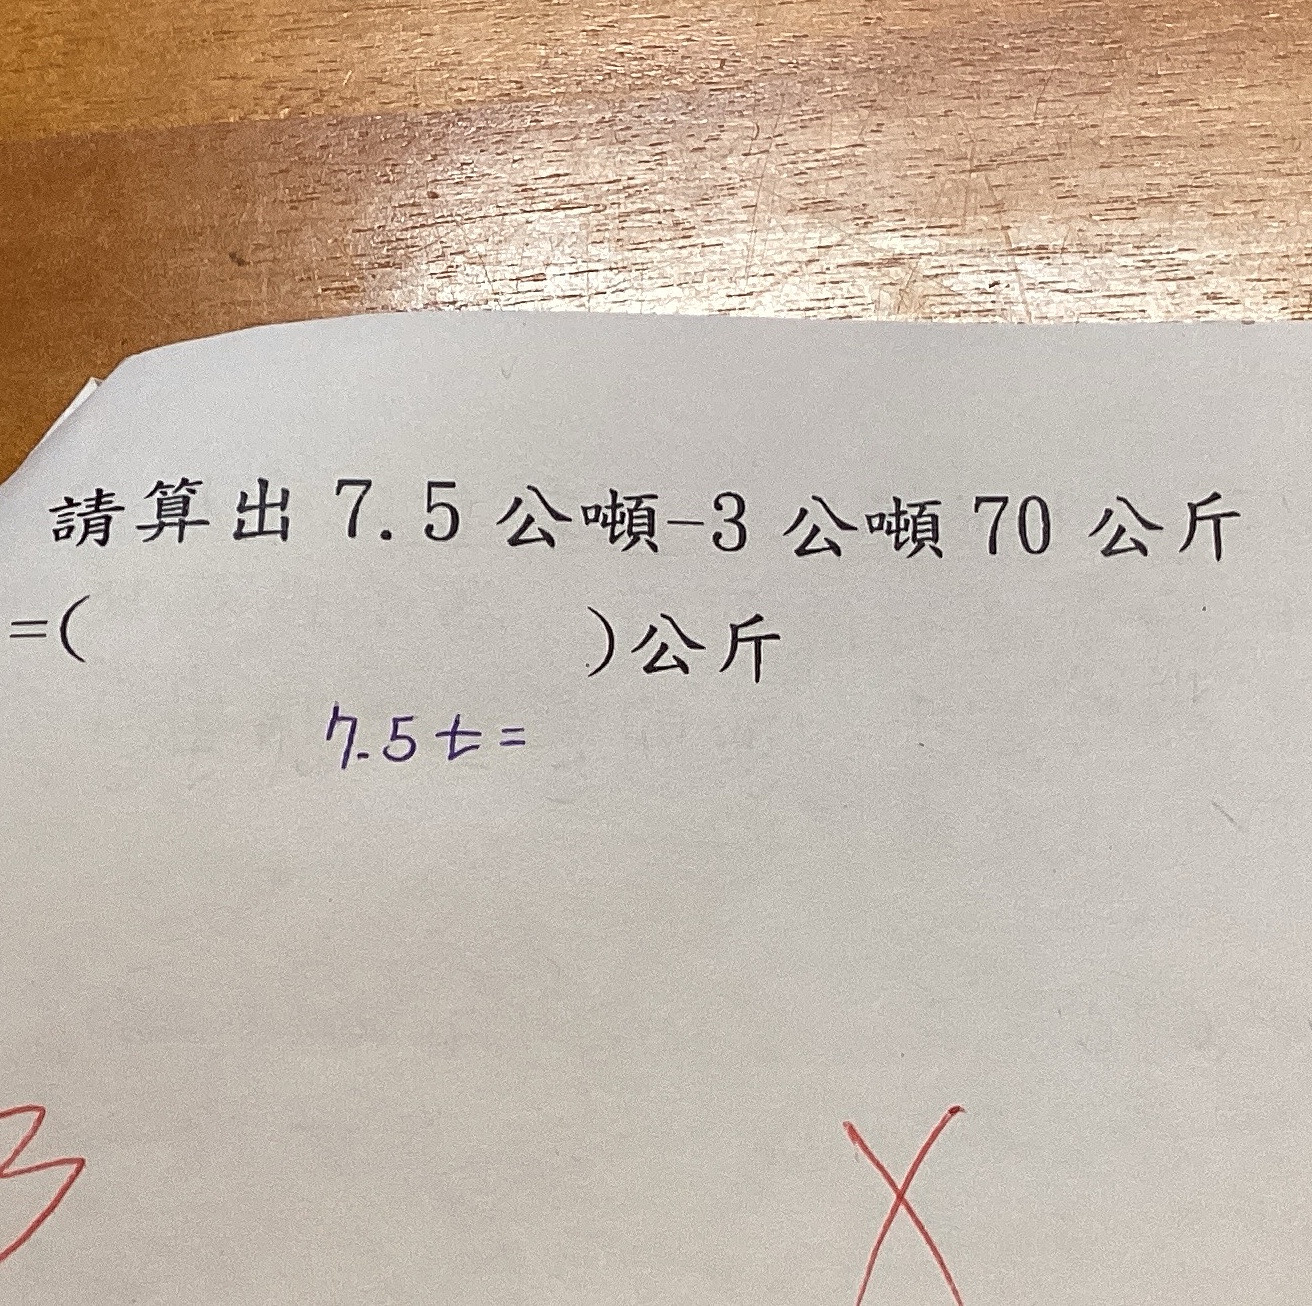 請算出 7.5 公噸-3 公噸 70 公斤
=( )公斤
7.5t=
3 X